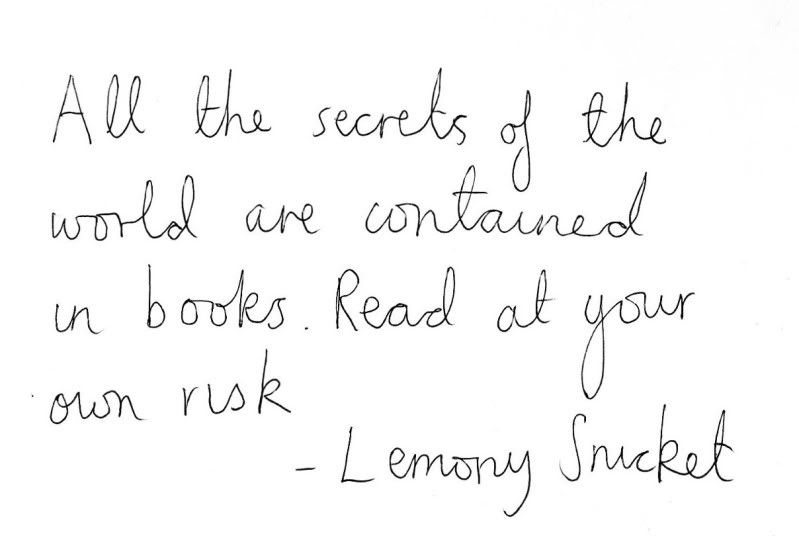 All the secrets of the
world are contained
in books. Read at your
own risk
- Lemony Snicket